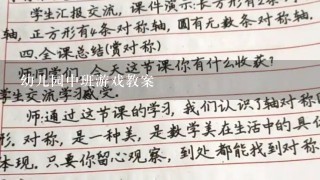 学生汇报交流,课件演示:长方形有2条
轴,正方形有4条对称轴,圆有无数条对称轴.
四.全课总结(赏对称)
今天这节课你有什么收获?
幼儿园中班游戏教案
学生交流学习感受.
师:通过这节课的学习,我们认识了轴对称
形.对称,是一种美,是数学美在生活中的具
体现.只要你留心观察,到处都能找到对称